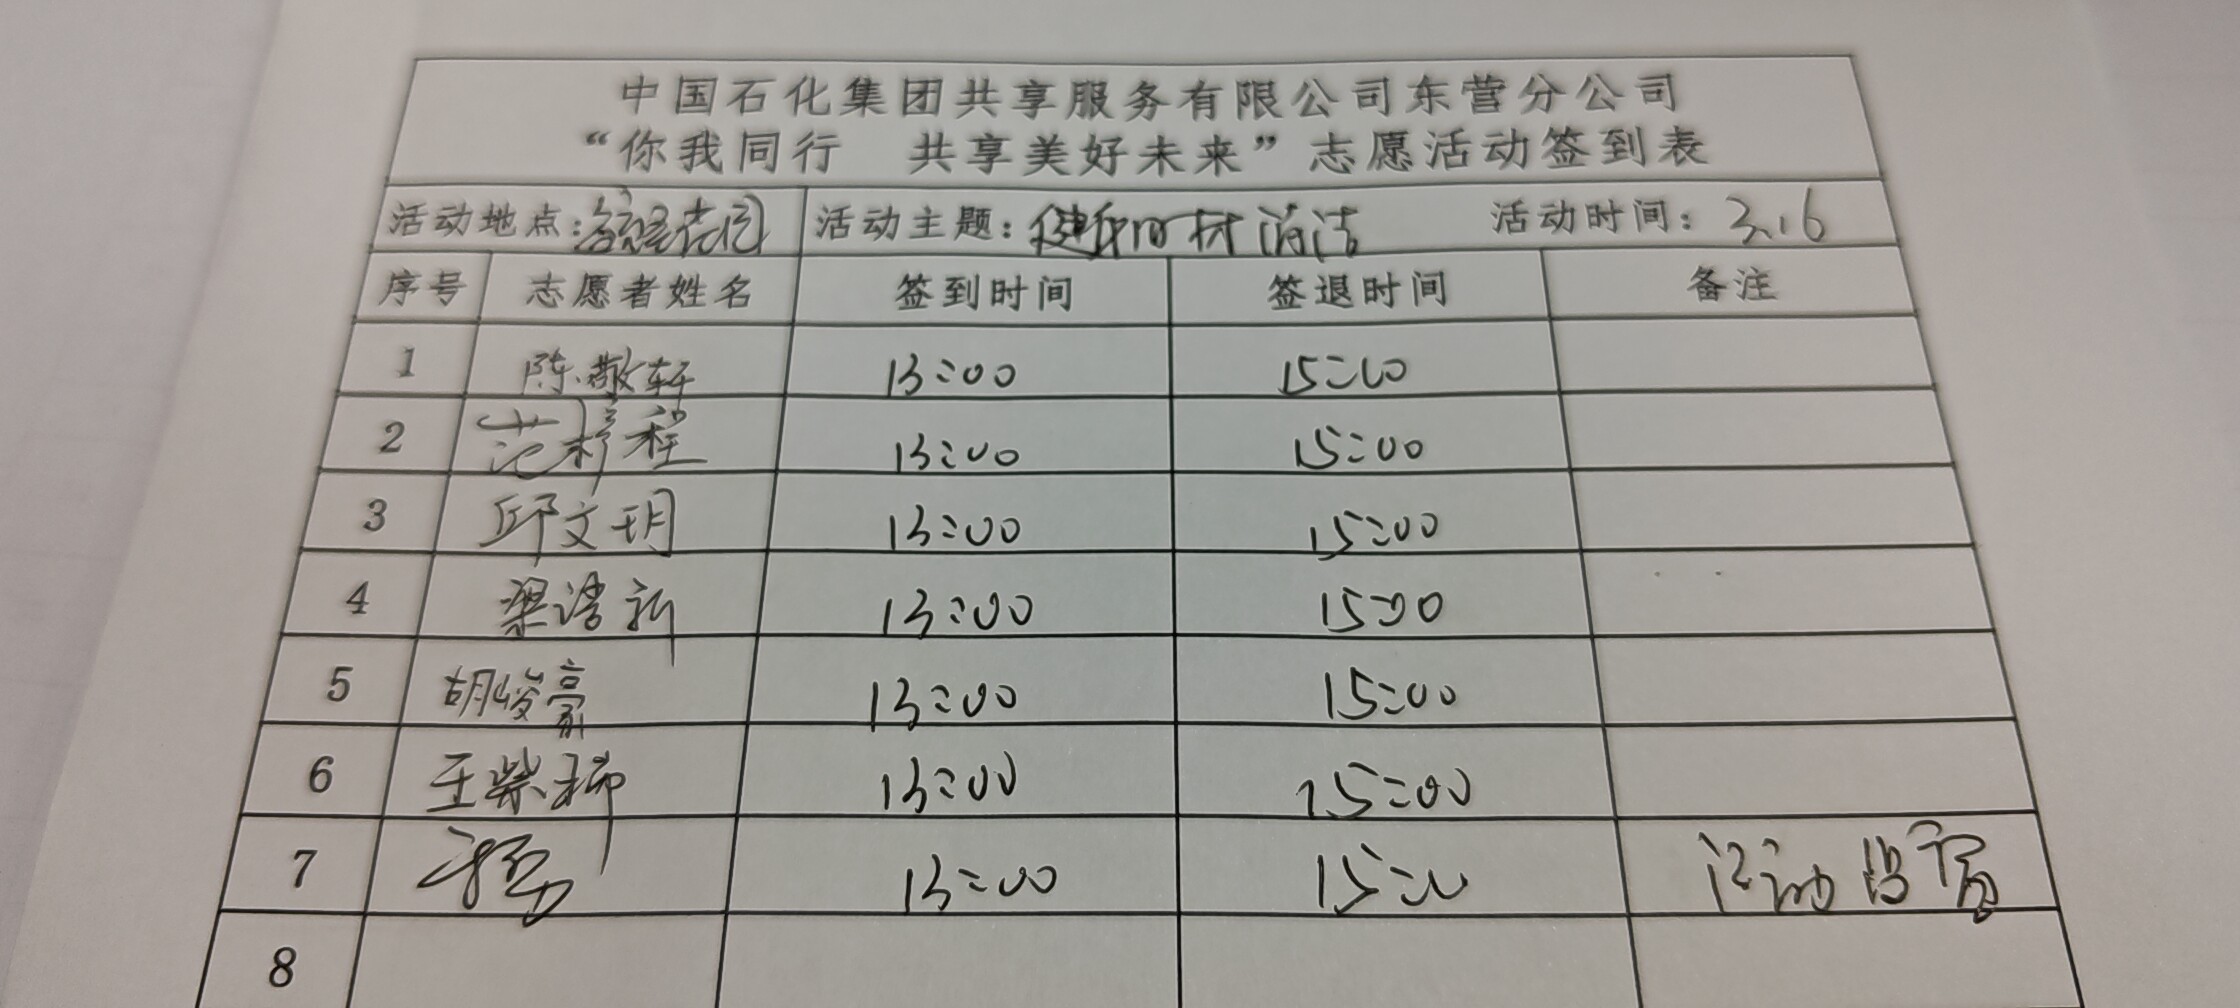 中国石化集团共享服务有限公司东营分公司
“你我同行 共享美好未来”志愿活动签到表
活动地点: 花园 活动主题: 健身器材清洁 活动时间: 3.16
序号 志愿者姓名 签到时间 签退时间 备注
1 陈敬轩 13:00 15:00
2 范梓程 13:00 15:00
3 邱文玥 13:00 15:00
4 梁浩新 13:00 15:00
5 胡峻豪 13:00 15:00
6 王紫稀 13:00 15:00
7 13:00 15:00 活动
8